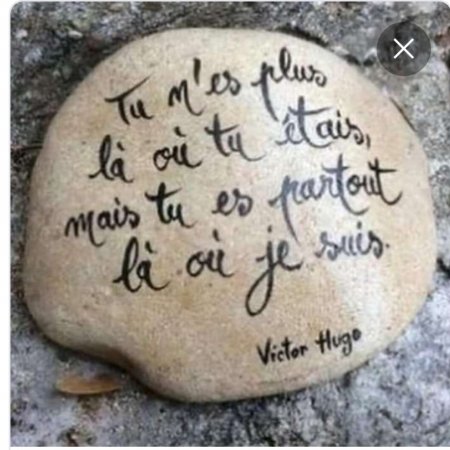 Tu n'es plus
là où tu étais,
mais tu es partout
là où je suis.
Victor Hugo